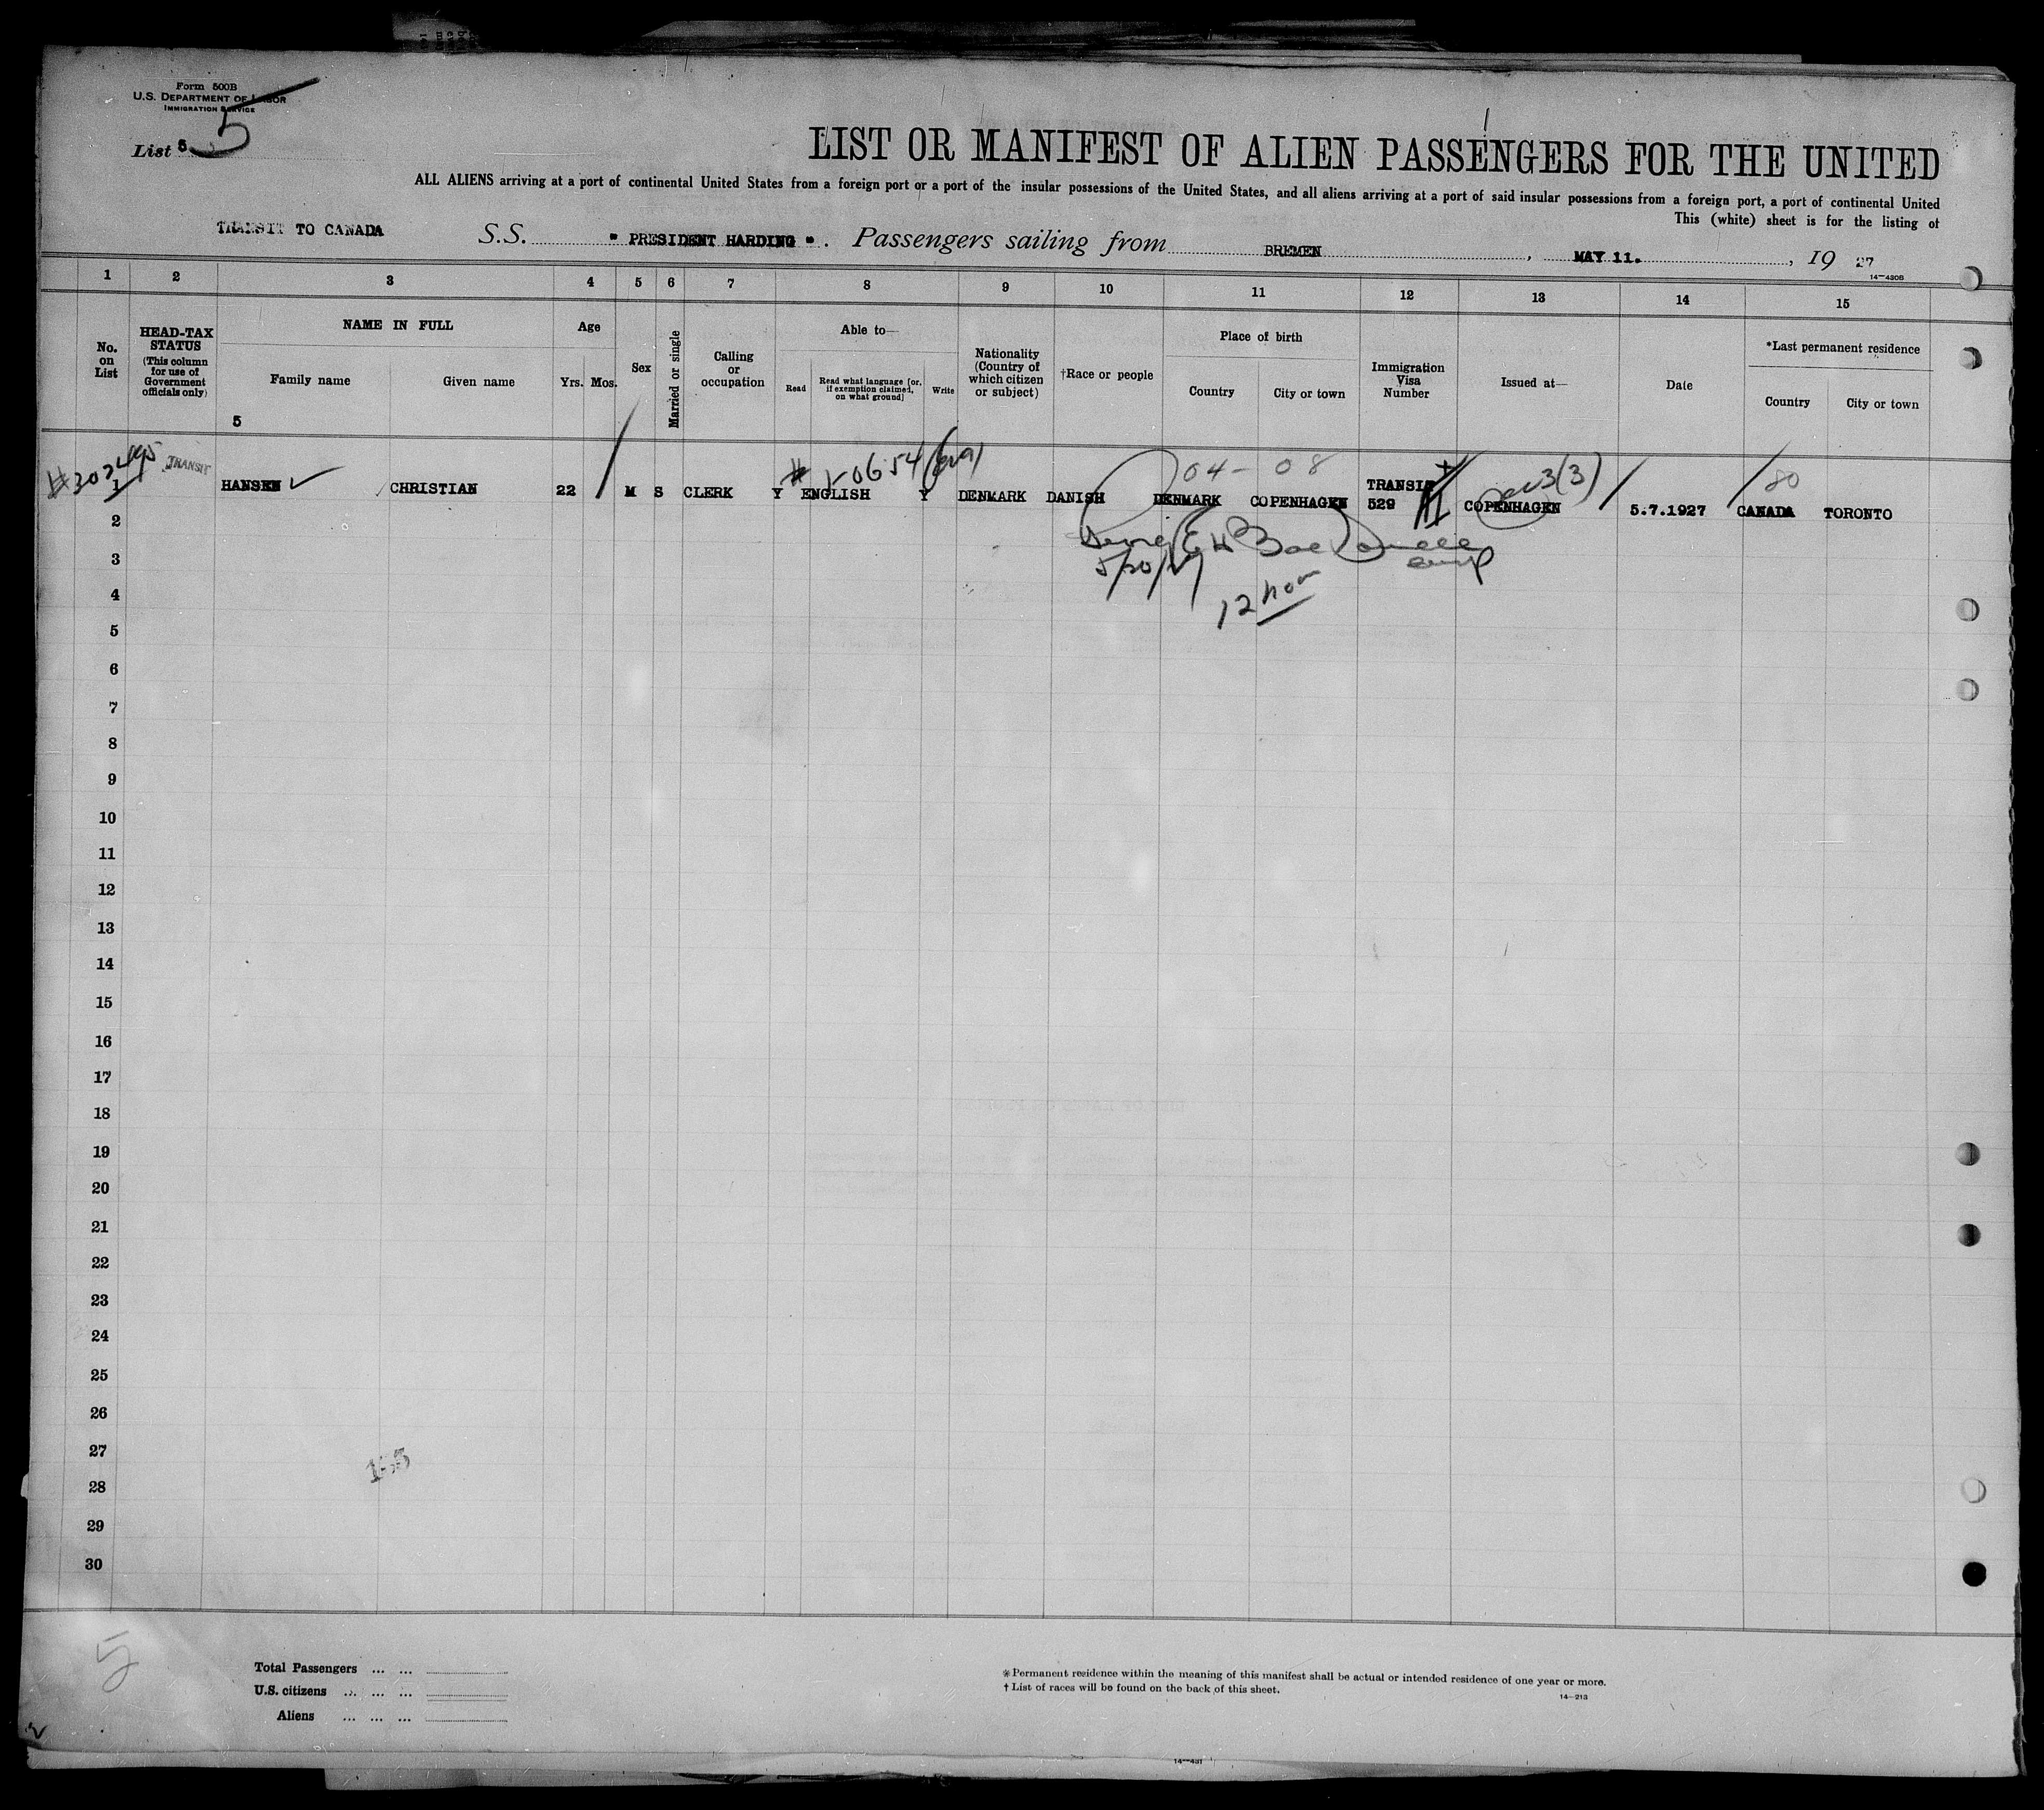 Form 500B
U.S. DEPARTMENT OF LABOR
IMMIGRATION SERVICE
List 5 5
LIST OR MANIFEST OF ALIEN PASSENGERS FOR THE UNITED
ALL ALIENS arriving at a port of continental United States from a foreign port or a port of the insular possessions of the United States, and all aliens arriving at a port of said insular possessions from a foreign port, a port of continental United
This (white) sheet is for the listing of
TRANSIT TO CANADA S.S. " PRESIDENT HARDING ". Passengers sailing from BREMEN, MAY 11., 19 27
14—430B
1 2 3 4 5 6 7 8 9 10 11 12 13 14 15
No. on List
HEAD-TAX STATUS (This column for use of Government officials only)
NAME IN FULL
Family name
Given name
5
Age
Yrs. Mos.
Sex
Married or single
Calling or occupation
Able to—
Read
Read what language [or, if exemption claimed, on what ground]
Write
Nationality (Country of which citizen or subject)
†Race or people
Place of birth
Country
City or town
Immigration Visa Number
Issued at—
Date
*Last permanent residence
Country
City or town
04 - 08
80
1 TRANSIT HANSEN CHRISTIAN 22 M S CLERK Y ENGLISH Y DENMARK DANISH DENMARK COPENHAGEN TRANSIT 529 COPENHAGEN 5.7.1927 CANADA TORONTO
2
3
5/20/27
4
12 noon
5
6
7
8
9
10
11
12
13
14
15
16
17
18
19
20
21
22
23
24
25
26
27
28
29
30
5
Total Passengers ... ...
U.S. citizens ... ... ...
Aliens ... ... ...
*Permanent residence within the meaning of this manifest shall be actual or intended residence of one year or more.
†List of races will be found on the back of this sheet.
14—213
14—431